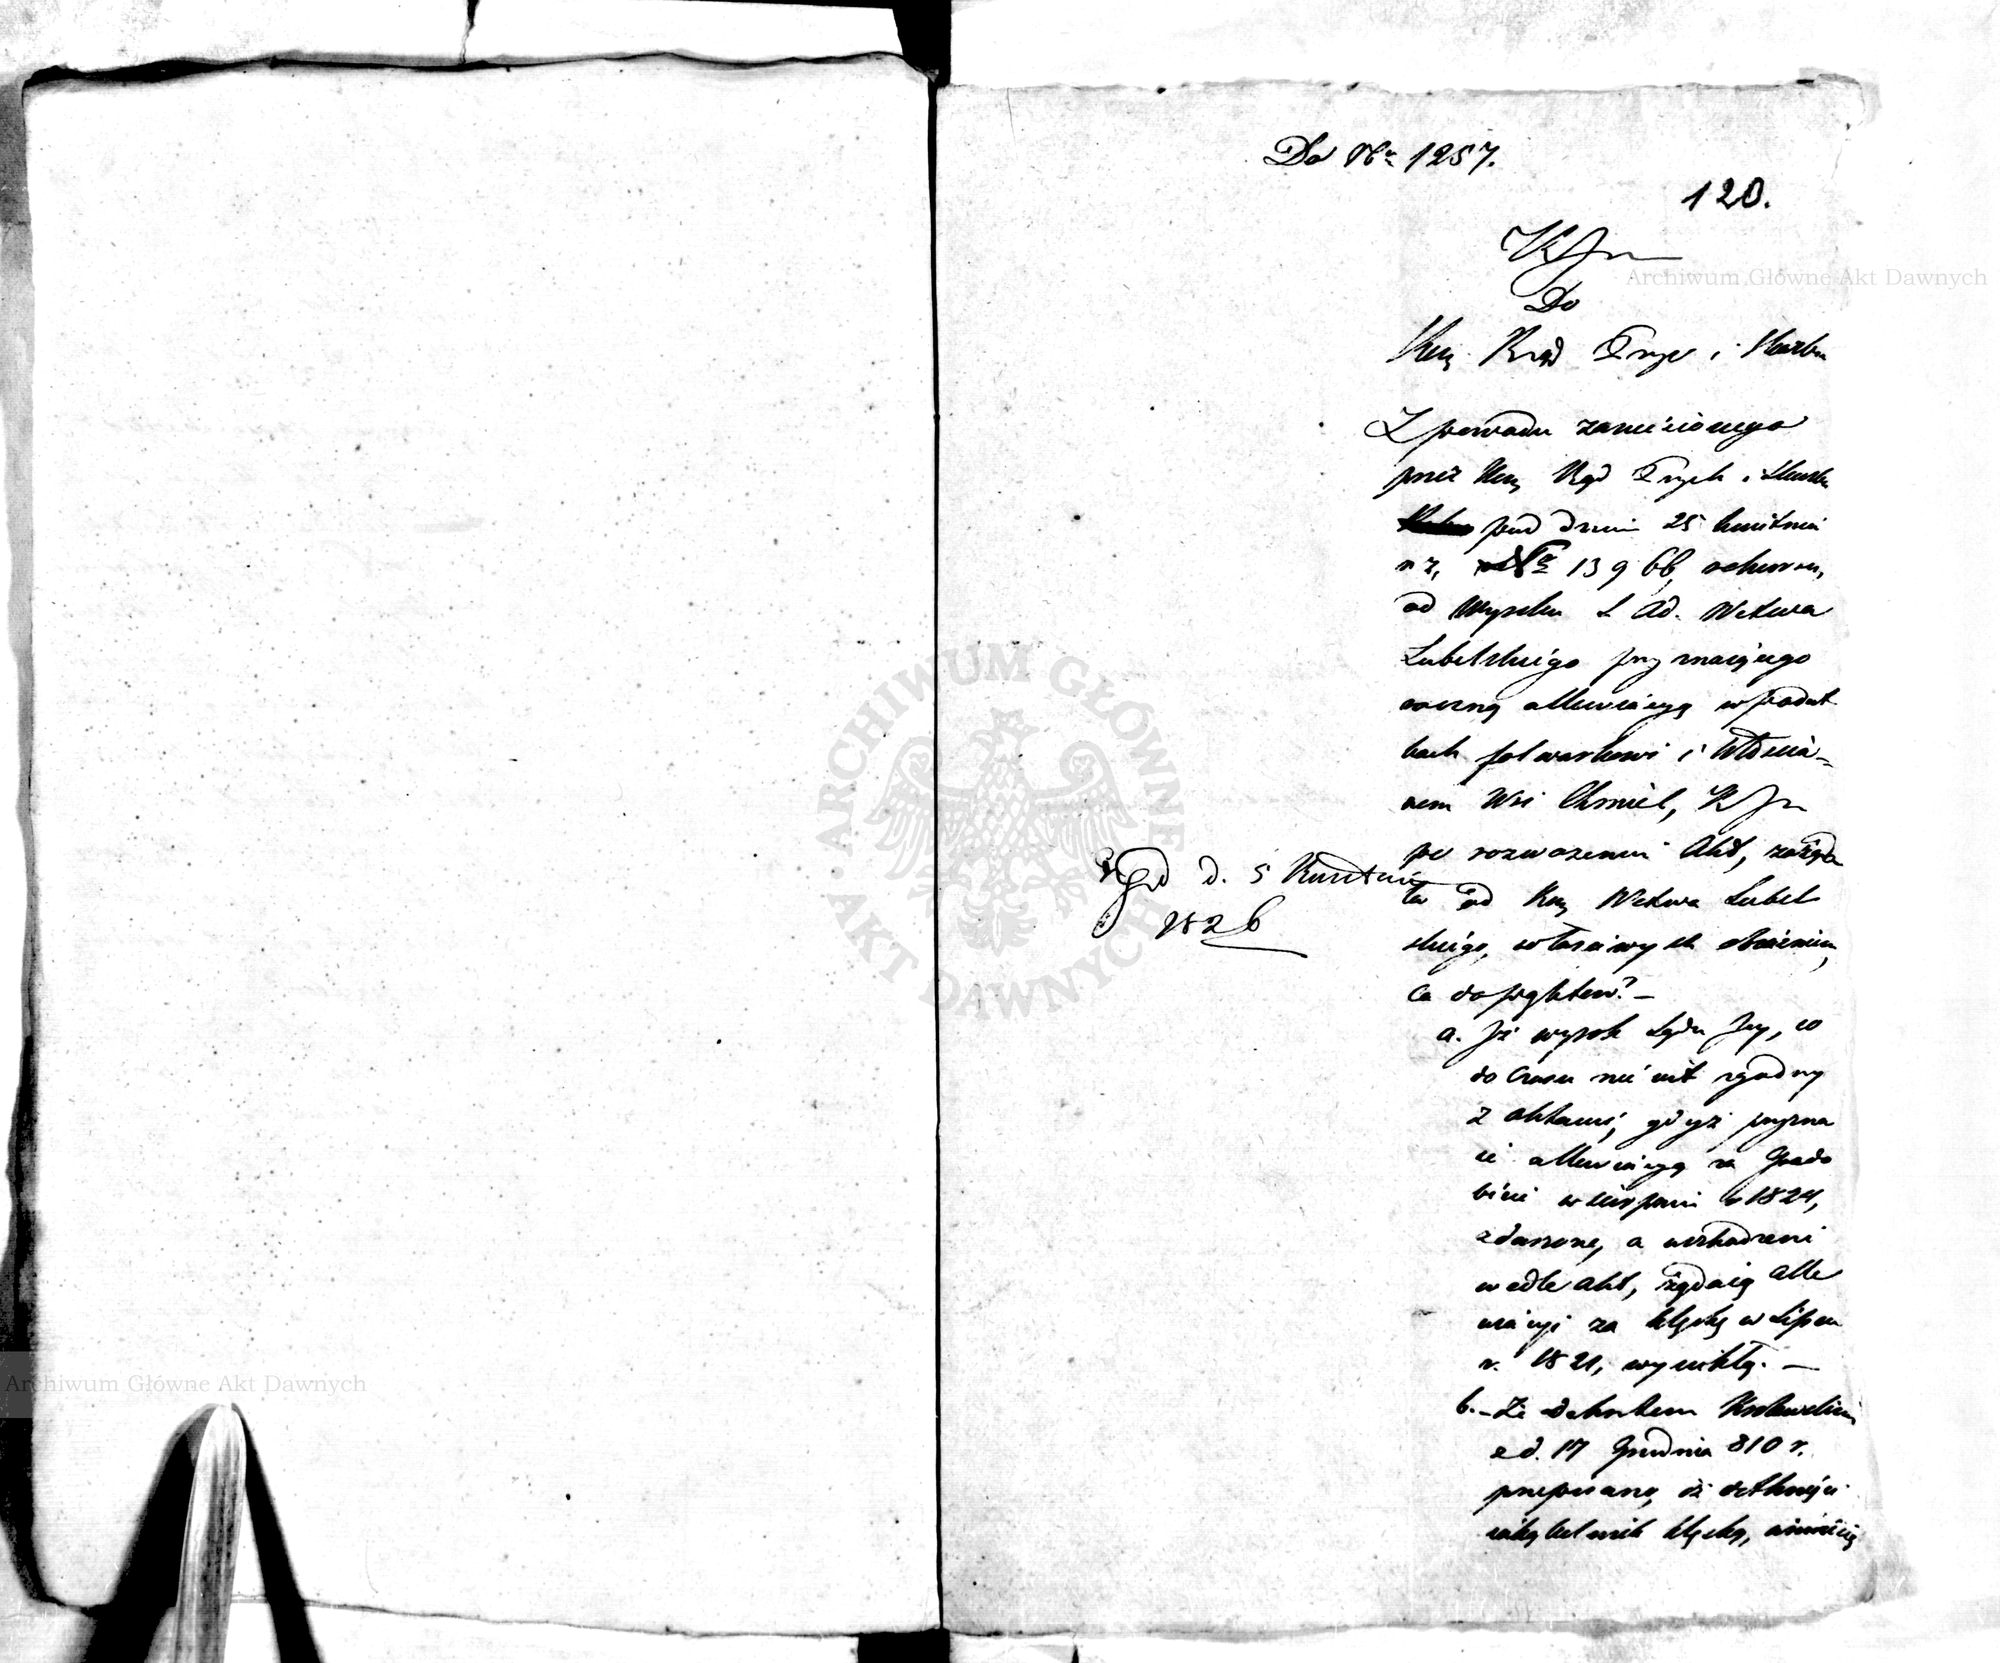 Do Nru 1257.
120.
Do
Kom Rząd Przy i Skarbu
Z powodu zaniesionego
przez Kom Rząd Przych i Skarbu
pod dniem 25 kwietnia
r z, 13966, rekursu,
od Wyroku S Ad. Wctwa
Lubelskiego przyznaiącego
roczną allewiacyą w podat
kach folwarkowi i Włościa-
nom Wsi Chmiel,
po rozważeniu Akt, zażąda
ła od Kom Wctwa Lubel
skiego, właściwych obiaśnień,
Co do punktów? —
a. Jż wyrok Sądu Jny, co
do Czasu nie iest zgodny
z aktami, gdyż przyzna
ie allewiacyą za Grado
bicie w Sierpniu r 1824,
zdarzone, a uszkodzeni
wedle akt, żądaią Alle
wiacyi za klęskę w Lipcu
r. 1821, wynikłą. —
b. – Że dekretem Królewskim
z d. 17 Grudnia 810 r.
przepisano, iż dotknięci
iakąkolwiek klęską,
d. 5 Kwietnia
1826
Archiwum Główne Akt Dawnych
ARCHIWUM GŁÓWNE AKT DAWNYCH
Archiwum Główne Akt Dawnych